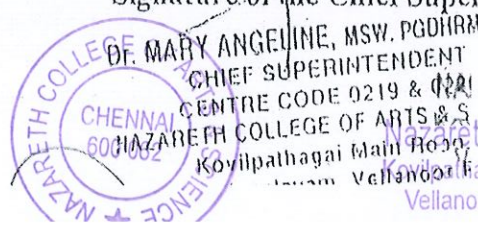 Signature of the Chief Super
Dr. MARY ANGELINE, MSW. PGDHRM
CHIEF SUPERINTENDENT
CENTRE CODE 0219 &
NAZARETH COLLEGE OF ARTS & S
Kovilpathagai Main Road,
Vellanoor
NAZARETH COLLEGE OF ARTS SCIENCE
CHENNAI
600 062
Nazaret
Kovilpatha
Vellano